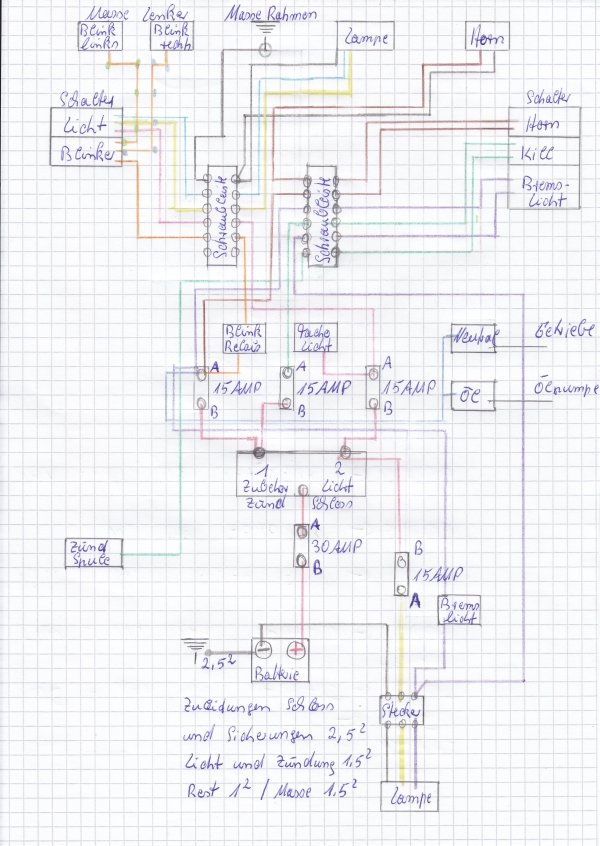 Masse Lenker
Blink links
Blink rechts
Masse Rahmen
Lampe
Horn
Schalter
Licht
Blinker
Schalter
Horn
Kill
Brems-
Licht
Schraubleiste
Schraubleiste
Blink
Relais
Tacho
Licht
Neutral
Getriebe
A
15 AMP
B
A
15 AMP
B
A
15 AMP
B
ÖL
Ölpumpe
1
2
Zubehör
Licht
Zünd
Schloss
A
30 AMP
B
B
15 AMP
A
Zünd
Spule
Brems
licht
2,5²
− +
Batterie
Stecker
Lampe
Zuleidungen Schloss
und Sicherungen 2,5²
Licht und Zündung 1,5²
Rest 1² / Masse 1,5²